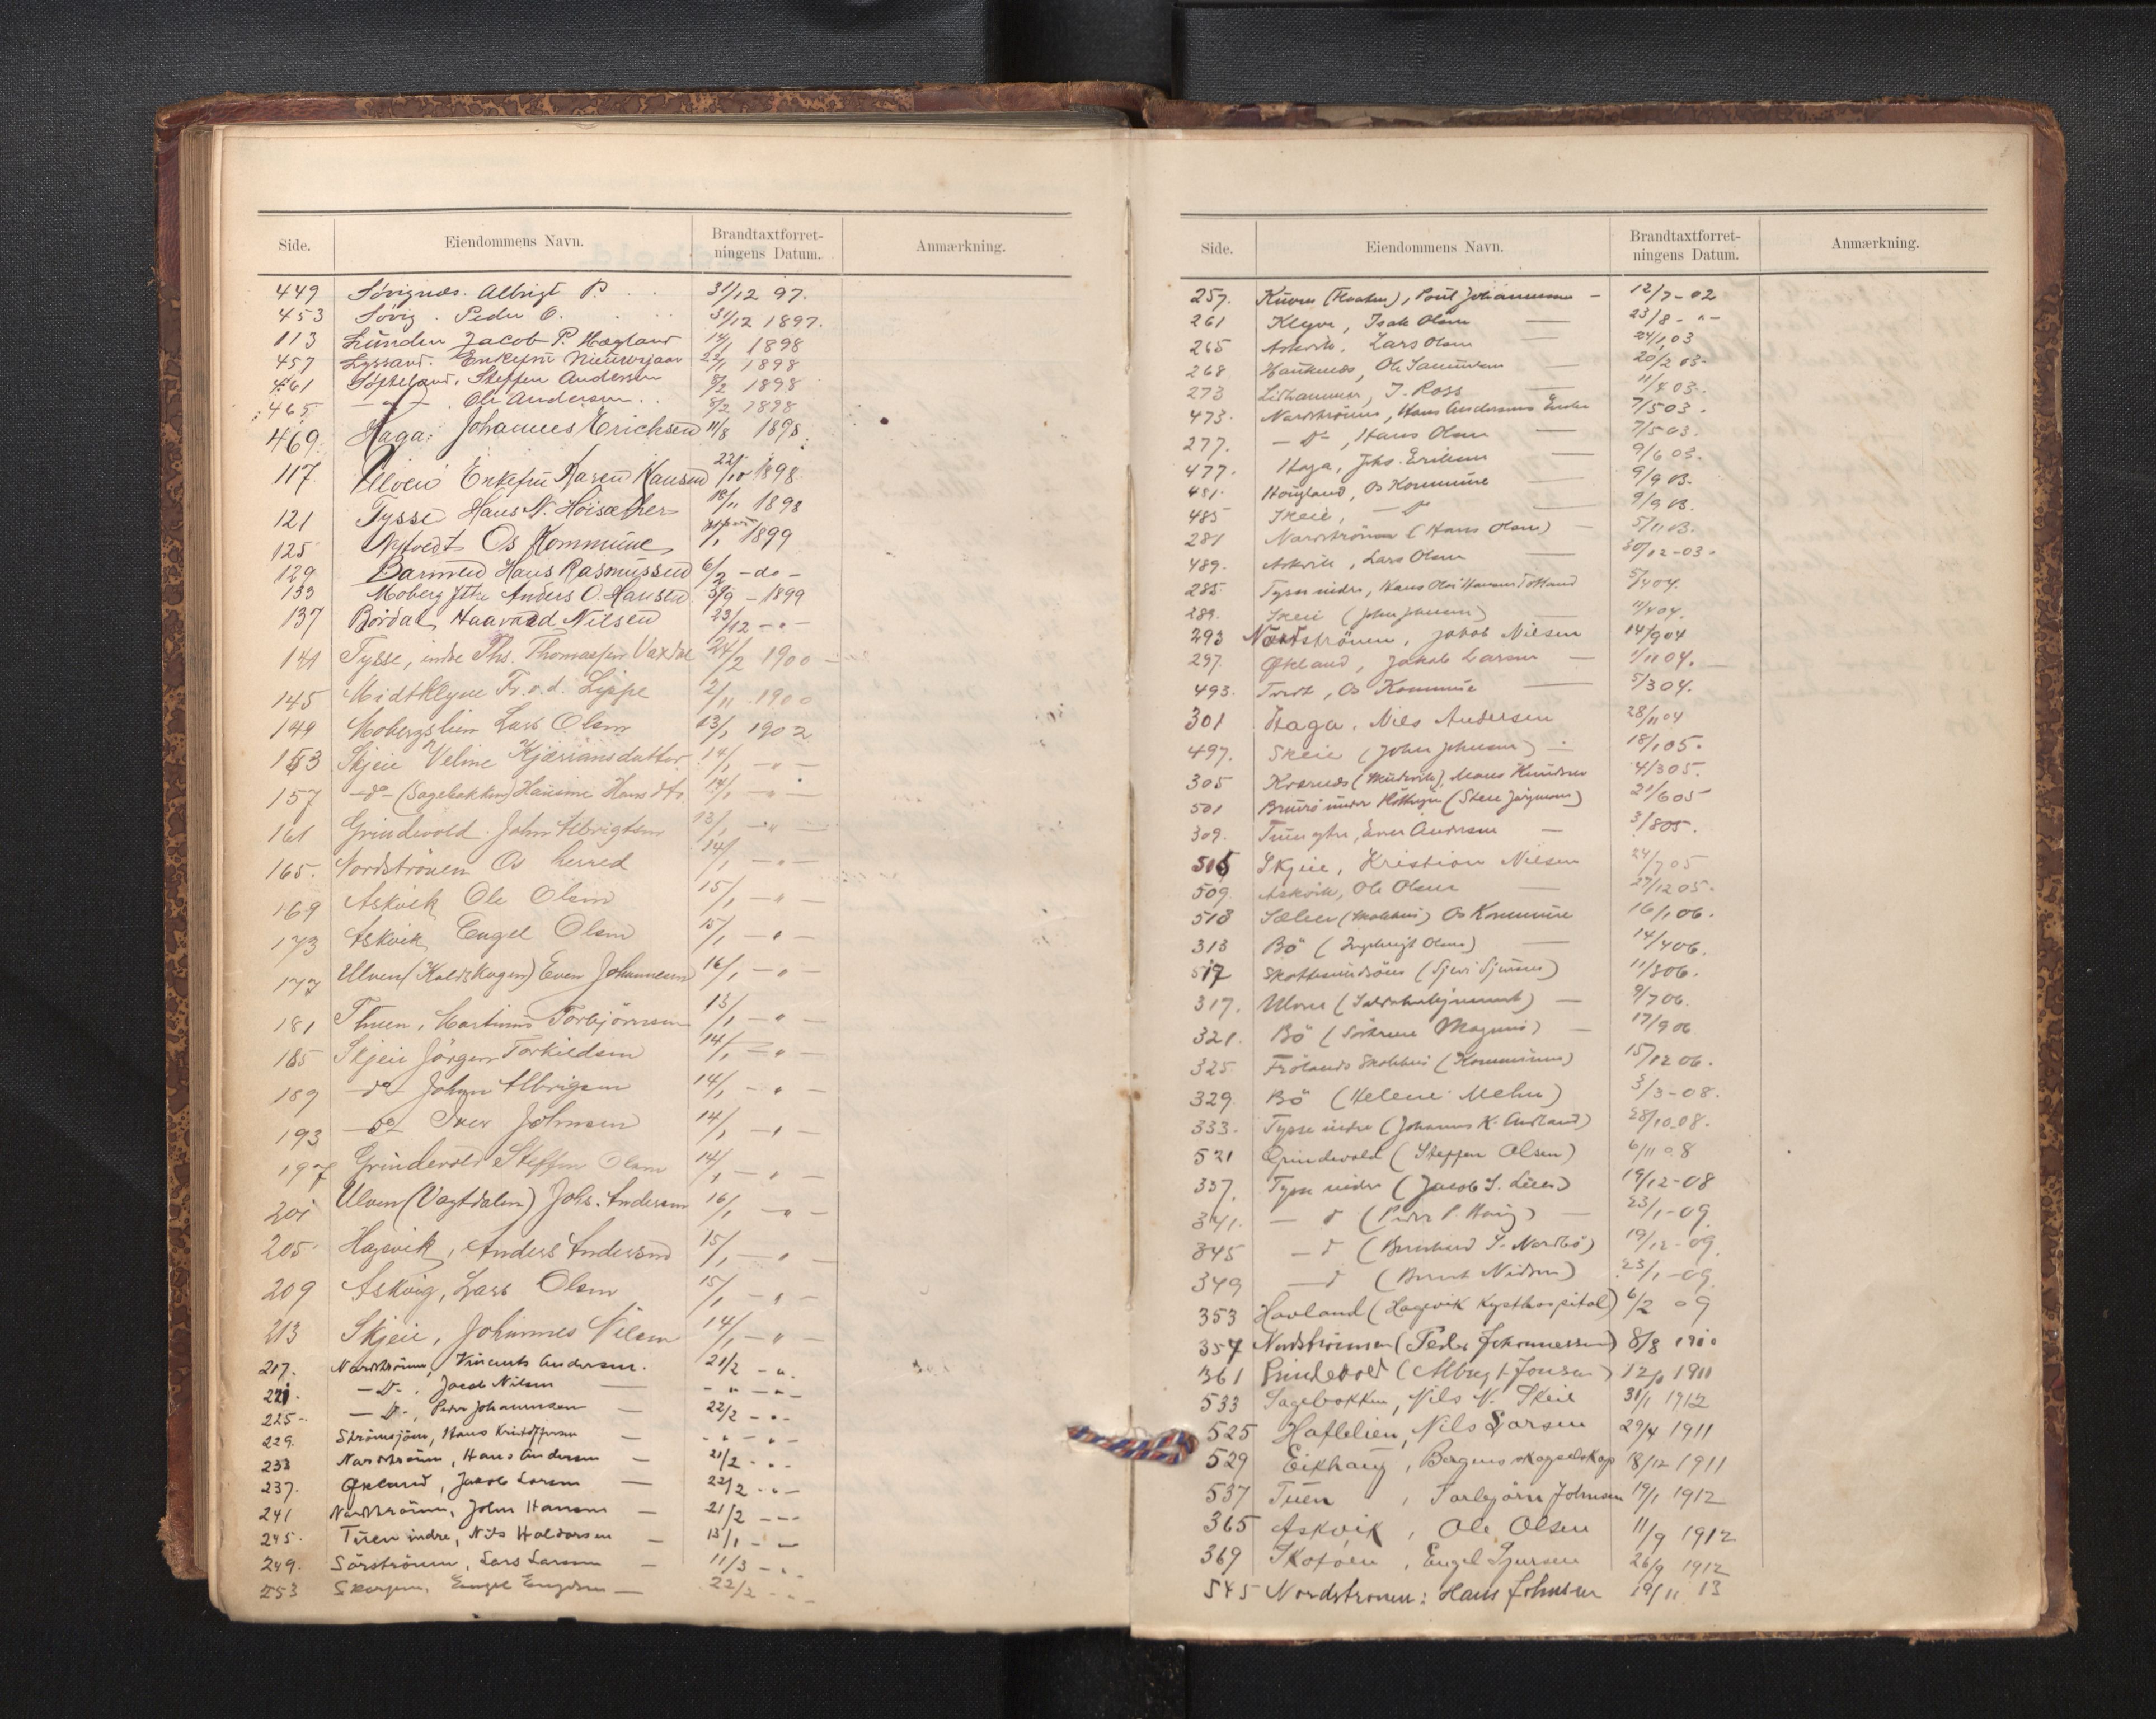 Side. Eiendommens Navn. Brandtaxtforret-ningens Datum. Anmærkning.
449 Sövignæs. Albrigt P. 31/12 97.
453 Sövig. Peder O. 31/12 1897.
113 Lunden Jacob P. Hægland 14/1 1898
457 Lyssand. Enkefru Nieuwejaar 22/1 1898
461 Söfteland, Steffen Andersen 8/2 1898
465 — " — . Ole Andersen . . 8/2 1898
469. Haga: Johannes Ericksen 11/8 1898
117. Ulven Enkefru Karen Hansen 22/10 1898
121 Tysse Hans N. Höisæther 18/11 1898
125 Nytvedt Os Kommune /1 1899
129 Barmen Hans Rasmussen 6/2 - do -
133 Moberg Ytre Anders O. Hansen 3/9 - 1899
137 Bördal, Haavard Nilsen 23/12 - " -
141 Tysse, indre Ths. Thomassen Vaxdal 24/2 1900
145 Midtklyve Fr. v. d. Lippe 2/11 1900
149 Mobergslien Lars Olsen 13/1 1902
153 Skjeie Veline Kjæriansdatter 14/1 - " -
157 -do- (Sagebakken) Hansine Hansdtr. 14/1 - " -
161 Grindevold. John Albrigtsen 13/1 - " -
165. Nordströnen Os herred 14/1 - " -
169 Askvik Ole Olsen 15/1 - " -
173 Askvik Engel Olsen 15/1 - " -
177 Ulven (Koldskogen) Even Johannesen 16/1 - " -
181 Thuen, Martinus Torbjörnsen 13/1 - " -
185 Skjeie Jörgen Torkildsen 14/1 - " -
189 -do- Johan Albrigsen 14/1 - " -
193 -do- Iver Johnsen 14/1 - " -
197 Grindevold Steffen Olsen 14/1 - " -
201 Ulven (Vagtdalen) Johs. Andersen 16/1 - " -
205. Hagevik, Anders Andersen 15/1 - " -
209 Askvig, Lars Olsen 15/1 - " -
213 Skjeie, Johannes Nilsen 14/1 - " -
217. Nordströnen, Vincents Andersen. 21/2 - " -
221. - D -, Jacob Nilsen — - " - " -
225. - D -, Peder Johannesen — 22/2 - " -
229. Strömsjöen, Hans Kristoffersen — - " - " -
233 Nordströnen, Hans Andersen — 21/2 - " -
237. Økland, Jacob Larsen — 22/2 - " -
241 Nordströnen, John Hansen — 21/2 - " -
245. Tuen indre, Nils Haldorsen — 13/1 - " -
249. Sörströnen, Lars Larsen — 11/3 - " -
253 Skorpen, Engel Engelsen — 22/2 - " -
Side. Eiendommens Navn. Brandtaxtforret-ningens Datum. Anmærkning.
257. Kuven (Floaten), Poul Johannessen — 12/7-02
261 Klyve, Isak Olsen — 23/8 - " -
265 Askvik, Lars Olsen — 24/1 03
268 Hauknes, Ole Samundsen — 20/2 03.
273 Lidhammer, J. Ross — 11/4 03.
473. Nordströnen, Hans Andersens Enke 7/5 03.
277. - D -, Hans Olsen — 7/5 03.
477. Haga, Johs. Eriksen — 9/6 03.
481. Hougland, Os Kommune — 9/9 03.
485 Skeie, - D - 9/9 03.
281 Nordströnen (Hans Olsen) — 5/11 03.
489. Askvik, Lars Olsen — 30/12-03.
285. Tysse indre, Hans Olai Hansen Totland 5/4 04.
289. Skeie (John Johnsen) — 11/4 04.
293 Nordströnen, Jakob Nielsen 14/9 04
297. Økland, Jakob Larsen — 1/11 04.
493. Tvedt, Os Kommune — 5/3 04.
301 Haga, Nils Andersen 28/11 04
497. Skeie (John Johnsen) — 18/1 05.
305 Kvernes (Mudevik), Mons Knudsen 4/3 05.
501 Brunö under Röttingen (Sten Jörgensen) 21/6 05
309. Tuen ytre, Iver Andersen — 3/8 05.
505 Skjeie, Kristian Nielsen 24/7 05
509. Askvik, Ole Olsen — 27/12 05.
513 Sælen (skolehus) Os Kommune 16/1 06.
313 Bö (Ingebrigt Olsen) — 14/4 06.
517 Skottesundsöen (Sjur Sjursen) 11/8 06.
317. Ulven — 9/7 06.
321. Bö (Sörkrune Magnus) — 17/9 06
325 Frölands Skolehus (Kommunen) 15/12 06.
329. Bö (Helene Mehn) 3/3-08.
333. Tysse indre (Johannes K. Austland) 28/10 08.
521 Grindevold (Steffen Olsen) 6/11 08
337. Tysse indre (Jacob S. Lien) 19/12-08
341. — d (Peder P. Haug) — 23/1-09
345 — d (Bernhard S. Nordbö) 19/12-09.
349 — d (Bernt Nielsen) 23/1-09
353 Havland (Hagevik Kysthospital) 6/2 09
357 Nordströnen (Peder Johannessen) 8/8 1910
361 Grindevold (Albregt Jonsen) 12/1 1911
533 Sagebakken, Nils N. Skeie 31/1 1912
525 Haflelien, Nils Larsen 29/4 1911
529 Eikhaug, Bergens skogselskap 18/12 1911
537 Tuen, Torbjörn Johnsen 19/1 1912
365 Askvik, Ole Olsen 11/9 1912
369 Skotöen, Engel Sjursen 26/9 1912
545 Nordstronen: Hans Johnsen 19/11 13